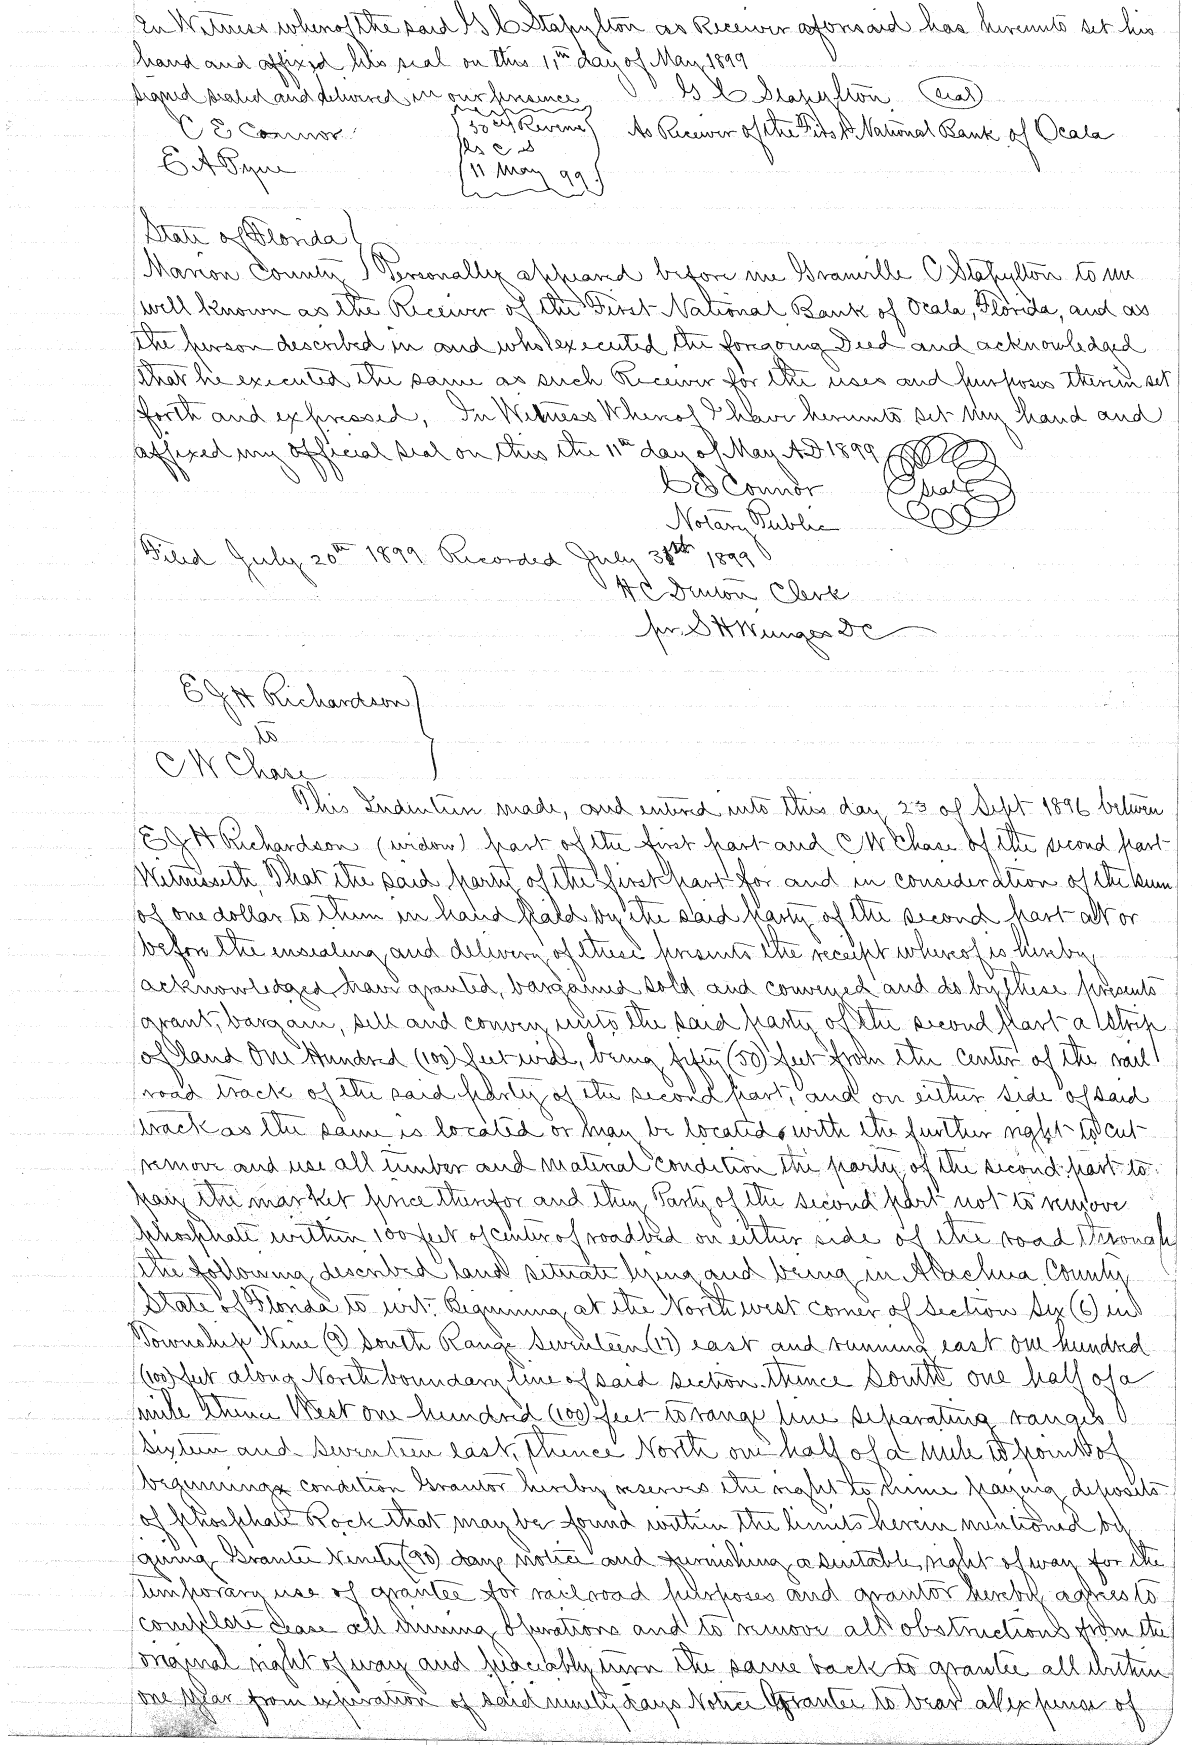 In Witness whereof the said G C Stapylton as Receiver aforesaid has hereunto set his
hand and affixed his seal on this 11th day of May 1899
Signed sealed and delivered in our presence G C Stapylton (seal)
C E Connor 50 cts Revenue As Receiver of the First National Bank of Ocala
E A Pyne G C S
11 May 99
State of Florida
Marion County Personally appeared before me Granville C Stapylton to me
well known as the Receiver of the First National Bank of Ocala, Florida, and as
the person described in and who executed the foregoing Deed and acknowledged
that he executed the same as such Receiver for the uses and purposes therein set
forth and expressed, In Witness Whereof I have hereunto set my hand and
affixed my official seal on this the 11th day of May A.D 1899
C E Connor (seal)
Notary Public
Filed July 20th 1899 Recorded July 31st 1899
H C Denton Clerk
pr. S H Wunges DC
E J H Richardson
to
C W Chase
This Indenture made, and entered into this day 23 of Sept 1896 between
E J H Richardson (widow) part of the first part and C W Chase of the second part
Witnesseth, That the said party of the first part for and in consideration of the sum
of one dollar to them in hand paid by the said party of the second part at or
before the ensealing and delivery of these presents the receipt whereof is hereby
acknowledged, have granted, bargained sold and conveyed and do by these presents
grant, bargain, sell and convey unto the said party of the second part a strip
of land One Hundred (100) feet wide, being fifty (50) feet from the center of the rail
road track of the said party of the second part, and on either side of said
track as the same is located or may be located, with the further right to cut
remove and use all timber and material condition the party of the second part to
pay the market price therefor and they Party of the second part not to remove
phosphate within 100 feet of center of roadbed on either side of the road through
the following described land situate lying and being in Alachua County
State of Florida to wit. Beginning at the North west corner of Section Six (6) in
Township Nine (9) South Range Seventeen (17) east and running east one hundred
(100) feet along North boundary line of said section thence South one half of a
mile thence West one hundred (100) feet to range line separating ranges
Sixteen and Seventeen east, thence North one half of a mile to point of
beginning condition Grantor hereby reserves the right to mine paying deposits
of phosphate Rock that may be found within the limits herein mentioned by
giving Grantee Ninety (90) days notice and furnishing a suitable right of way for the
temporary use of grantee for railroad purposes and grantor hereby agrees to
complete cease all mining operations and to remove all obstructions from the
original right of way and peaceably turn the same back to grantee all within
one year from expiration of said ninety days Notice Grantee to bear all expense of